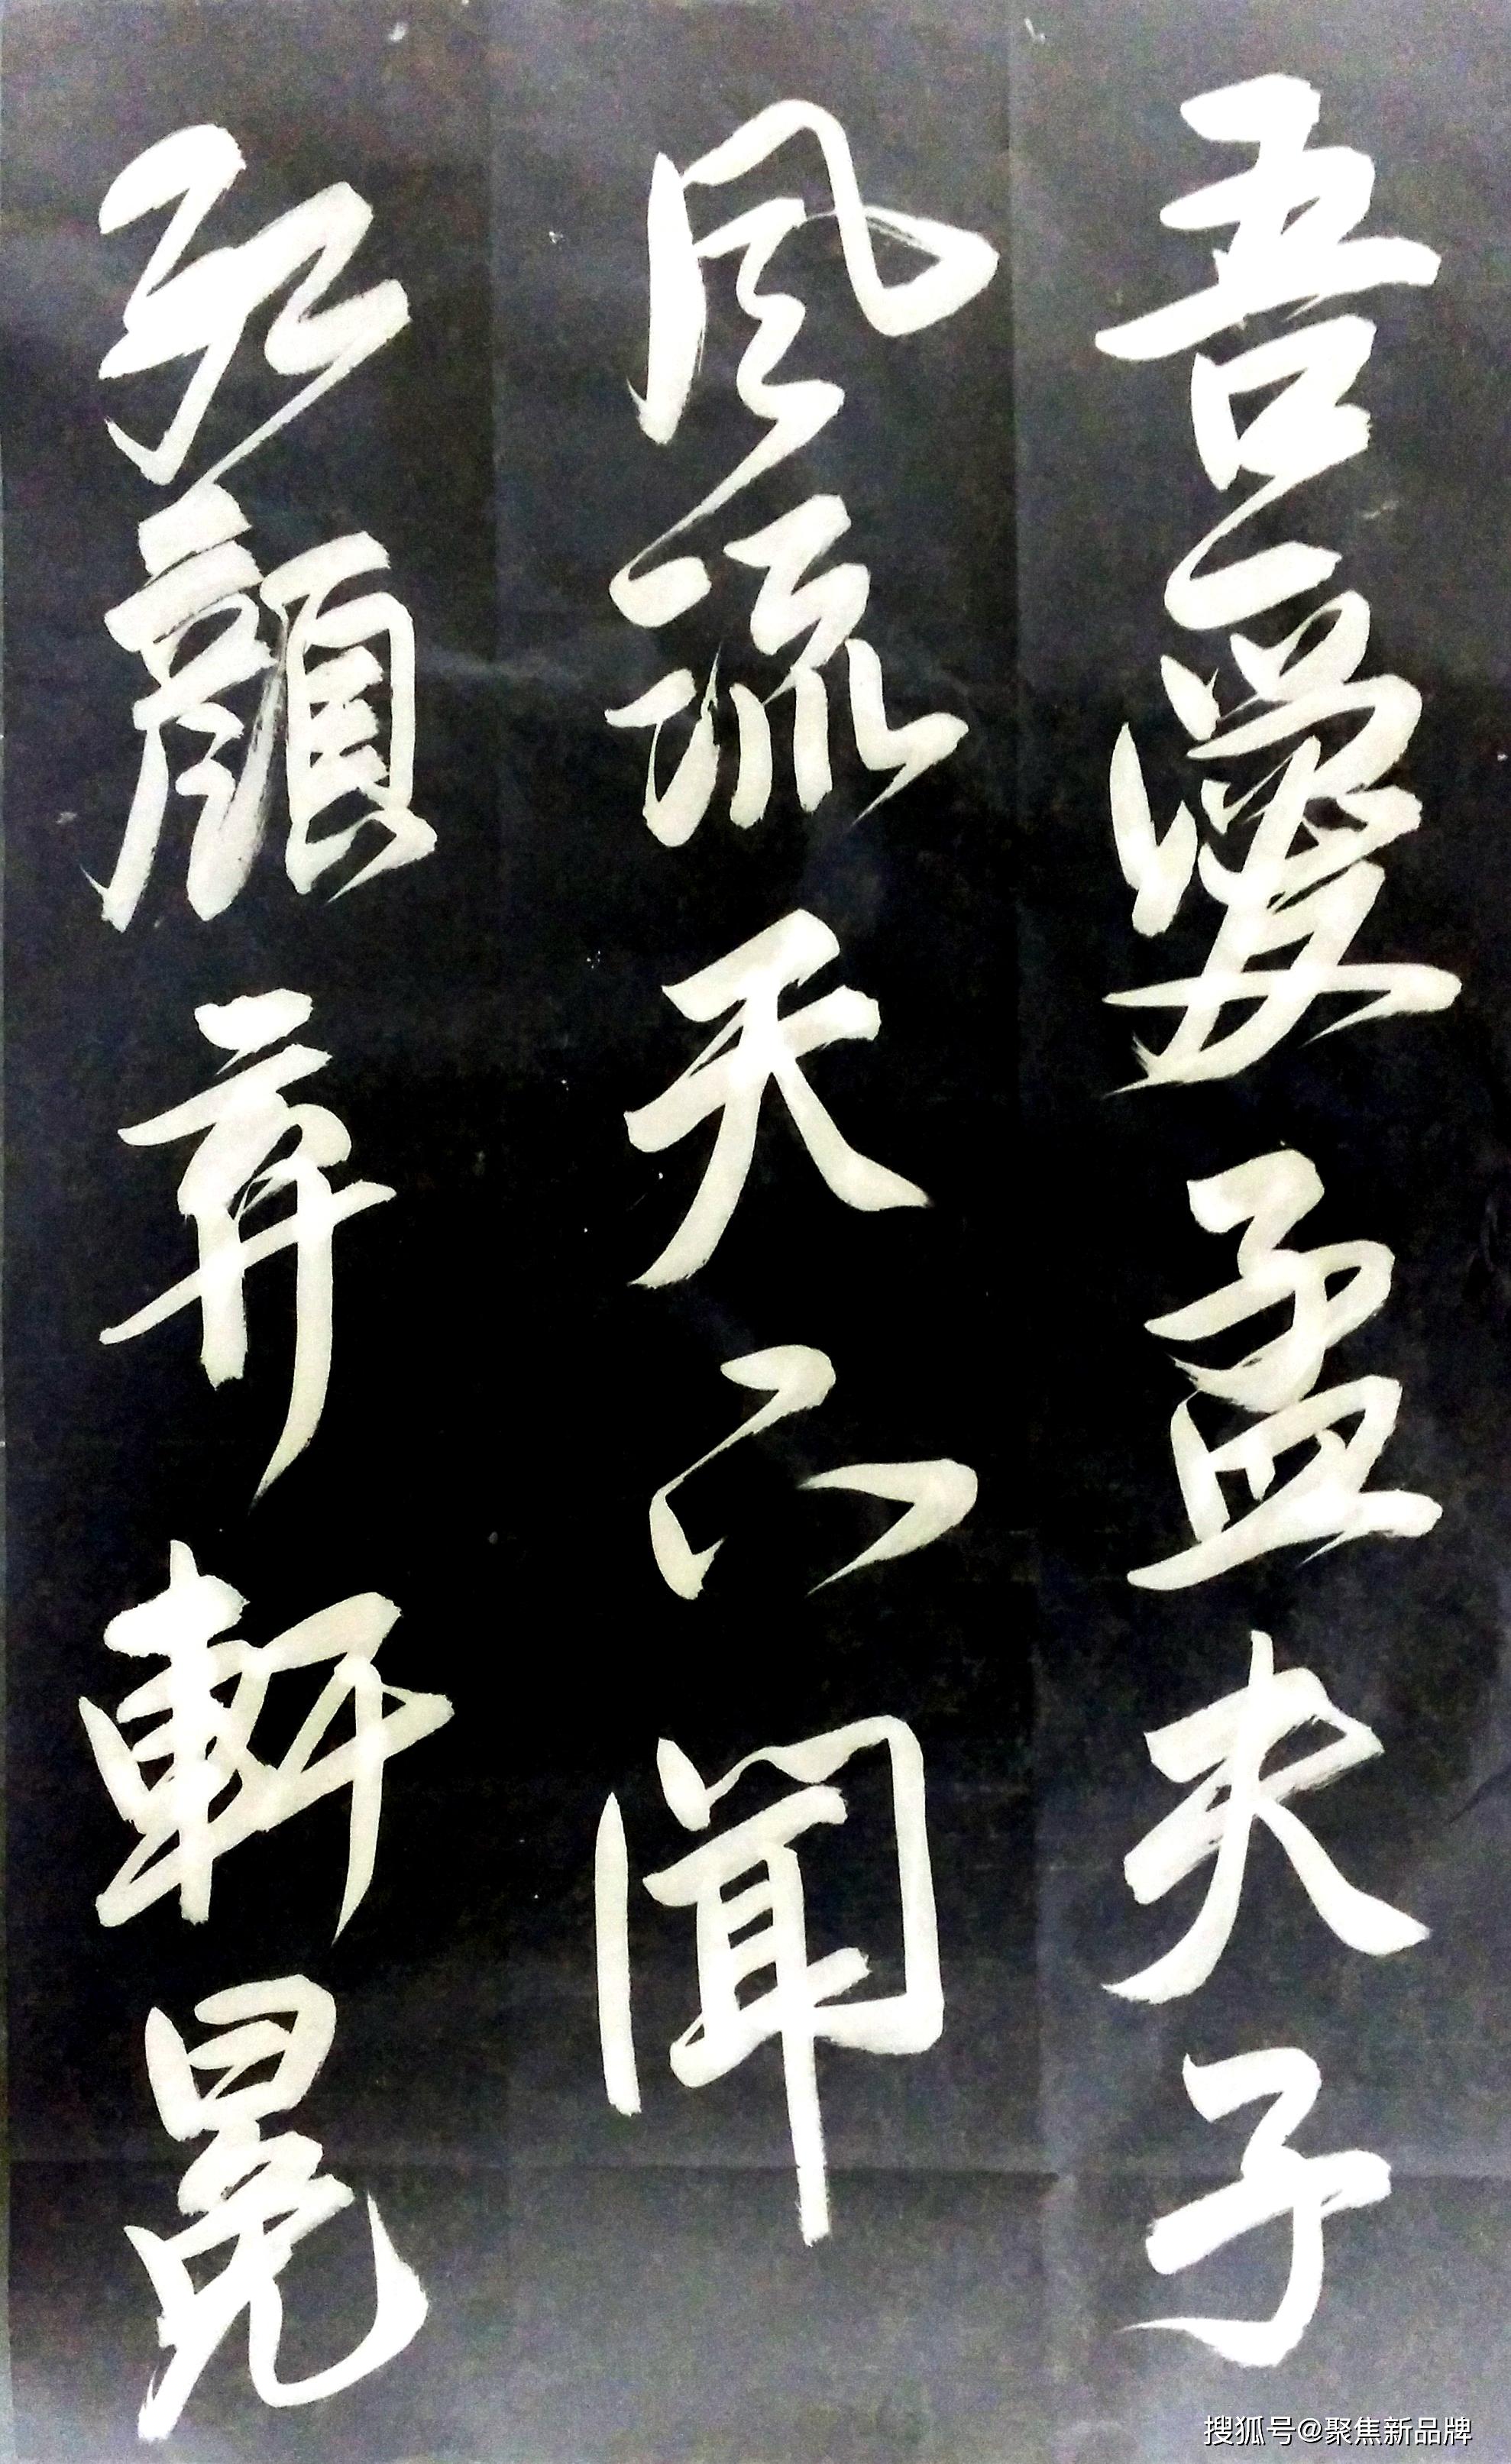 吾愛孟夫子
風流天下聞
紅顔弃軒冕
搜狐号@聚焦新品牌